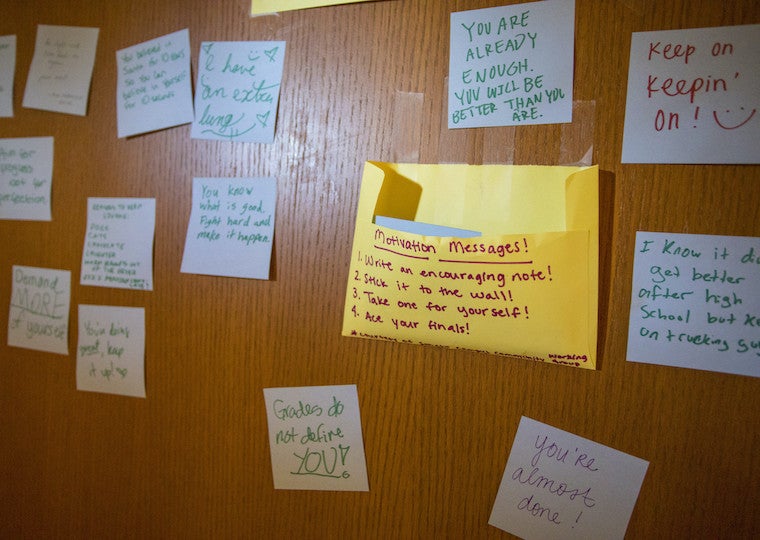 YOU ARE
ALREADY
ENOUGH.
YOU WILL BE
BETTER THAN YOU
ARE.
Keep on
Keepin'
on!
You believed in
Santa for 10 years
so you can
believe in yourself
for 10 seconds
I have
an extra
lung
Aim for
progress
not for
perfection
You know
what is good.
Fight hard and
make it happen.
REASONS TO KEEP
DOGS
CATS
CHOCOLATE
LAUGHTER
Demand
MORE
of yourself
You're doing
great, keep
it up!
Motivation Messages!
1. Write an encouraging note!
2. Stick it to the wall!
3. Take one for yourself!
4. Ace your finals!
Community Working
group
I know it
get better
after high
School but
on trucking
Grades do
not define
YOU!
You're
almost
done!